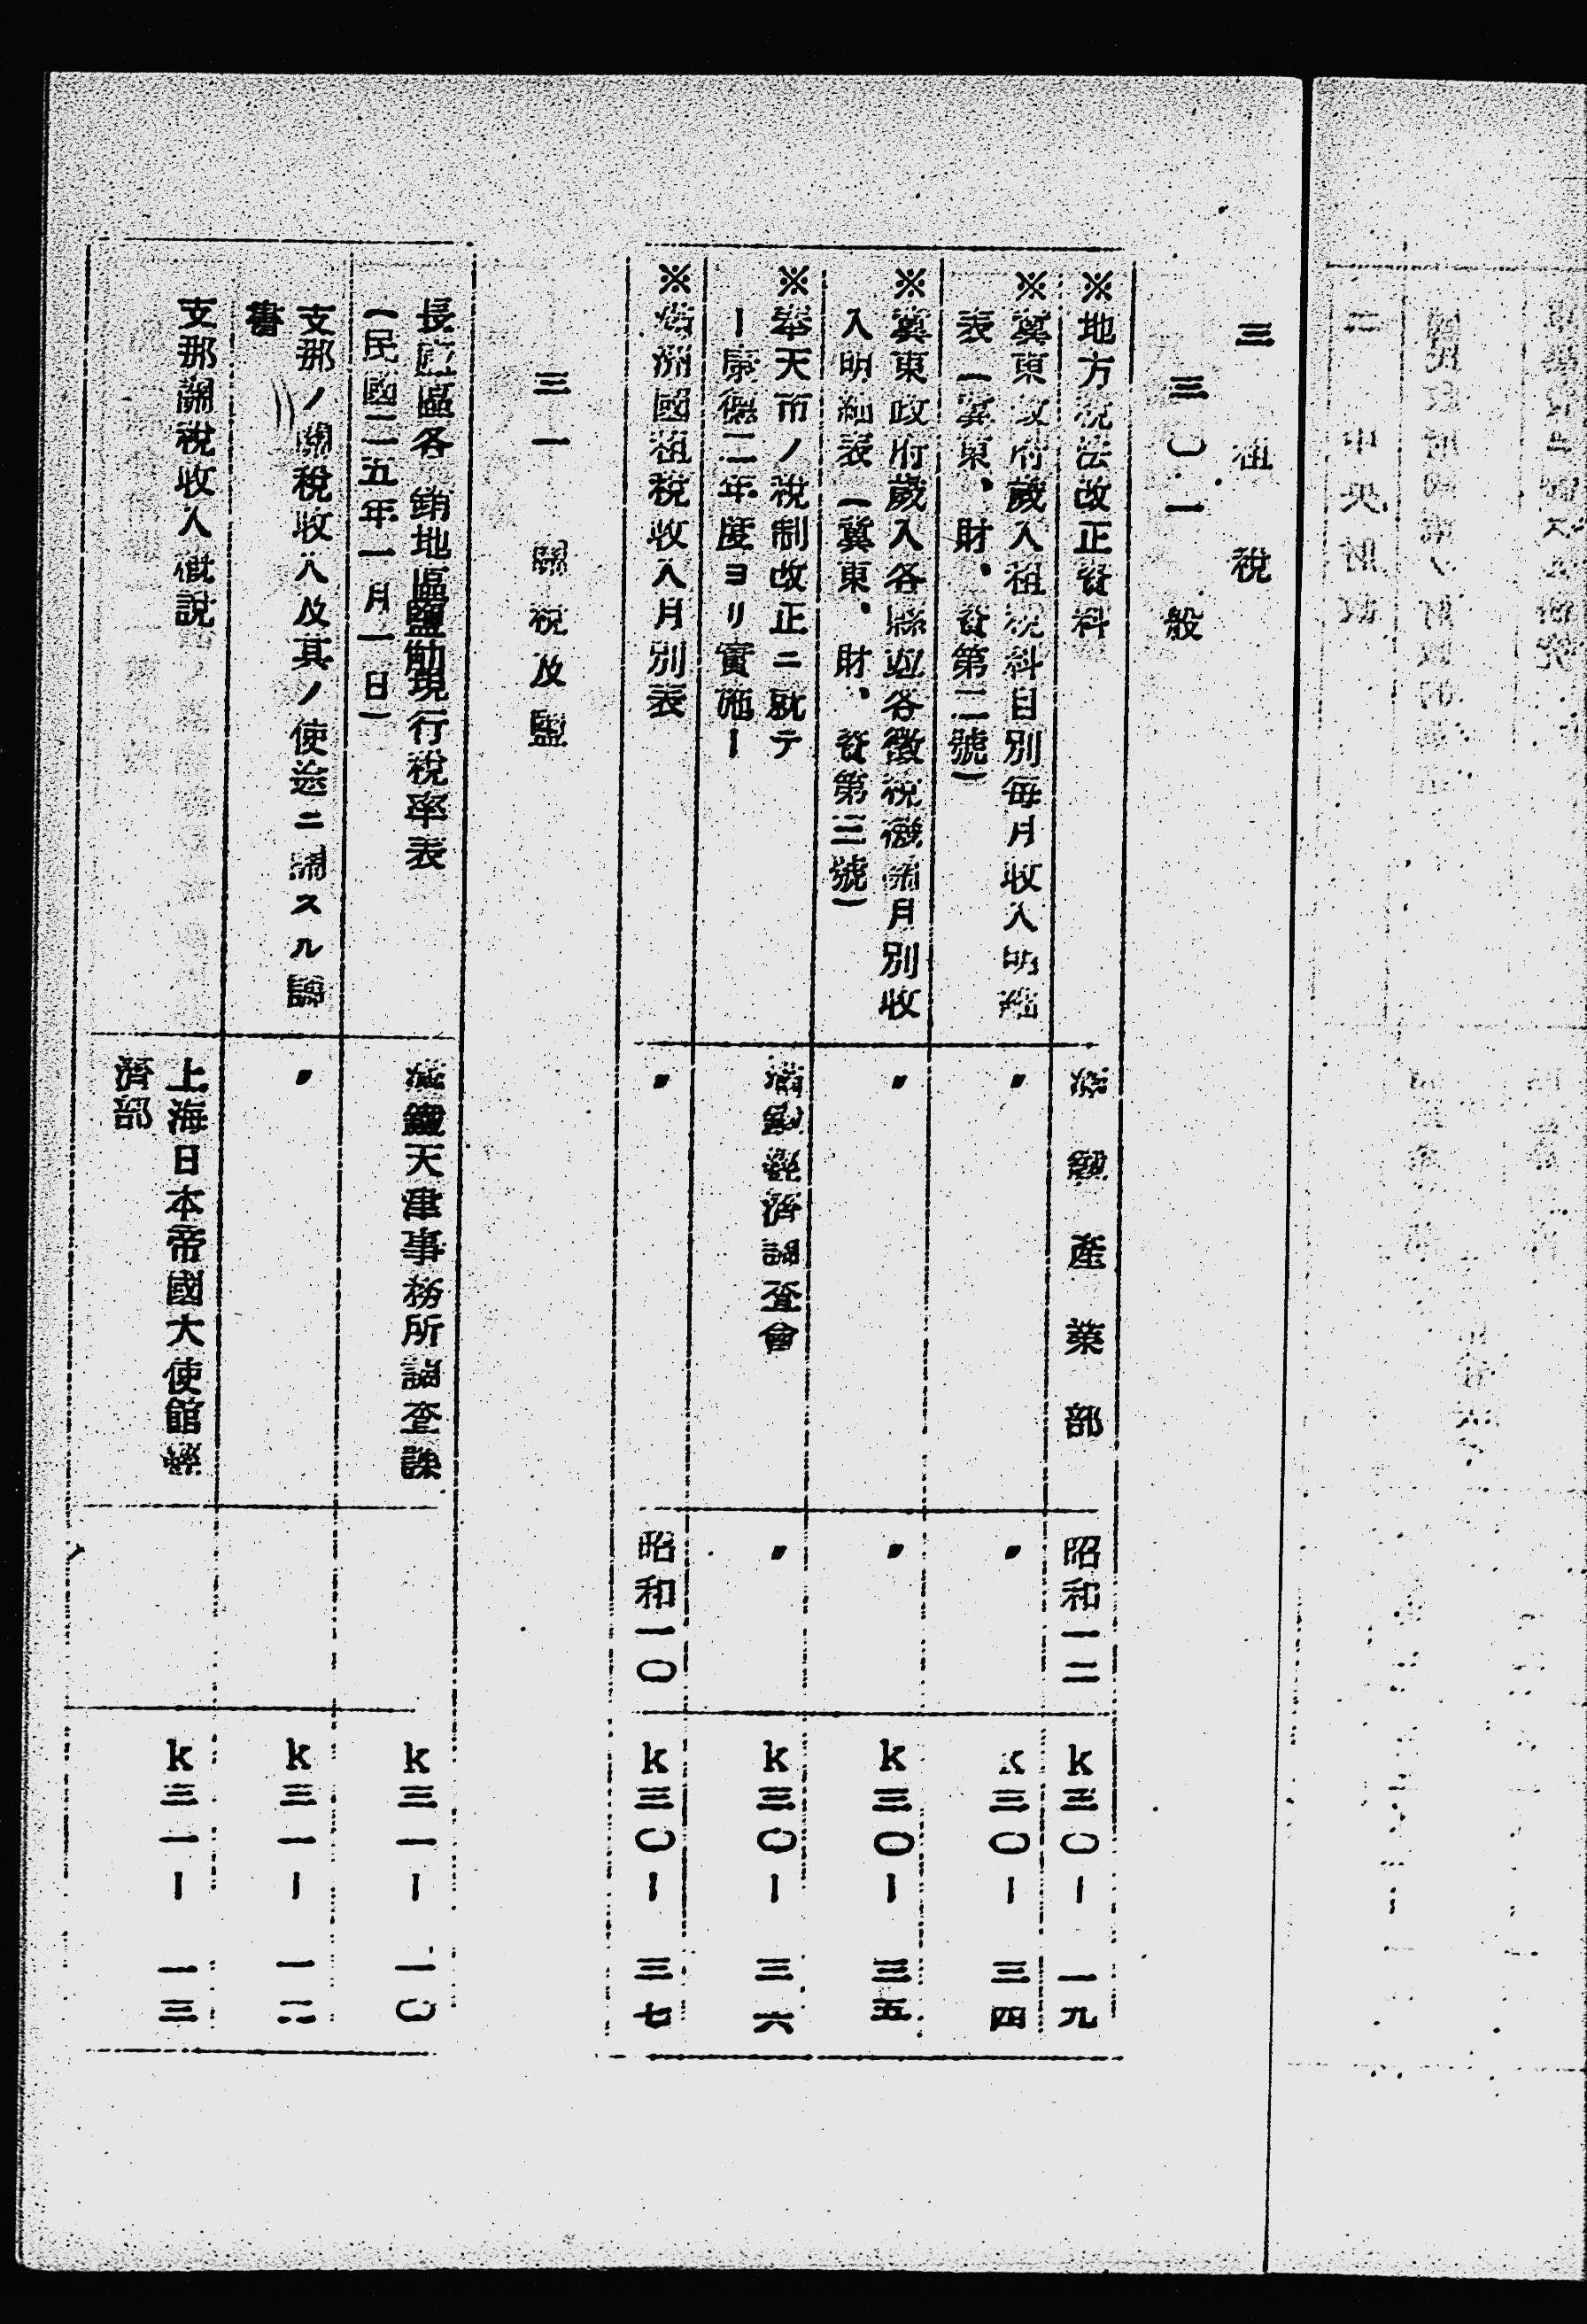 三　租　税
三〇　一　般
※地方税法改正資料　満鐵産業部　昭和一二　k三〇ー一九
※冀東政府歳入租税科目別毎月收入明細
表（冀東、財、資第二號）　〃　〃　k三〇ー三四
※冀東政府歳入各縣並各徴税機關月別收
入明細表（冀東、財、資第三號）　〃　〃　k三〇ー三五
※奉天市ノ税制改正ニ就テ
ー康德二年度ヨリ實施ー　満鐵經濟調査會　〃　k三〇ー三六
※満洲國租税收入月別表　〃　昭和一〇　k三〇ー三七
三一　關税及鹽
長蘆區各銷地區鹽觔現行税率表
（民國二五年一月一日）　満鐵天津事務所調査課　k三一ー一〇
支那ノ關税收入及其ノ使途ニ關スル調
書　〃　k三一ー一二
支那關税收入概説　上海日本帝國大使館經
濟部　k三一ー一三
二　中央財政